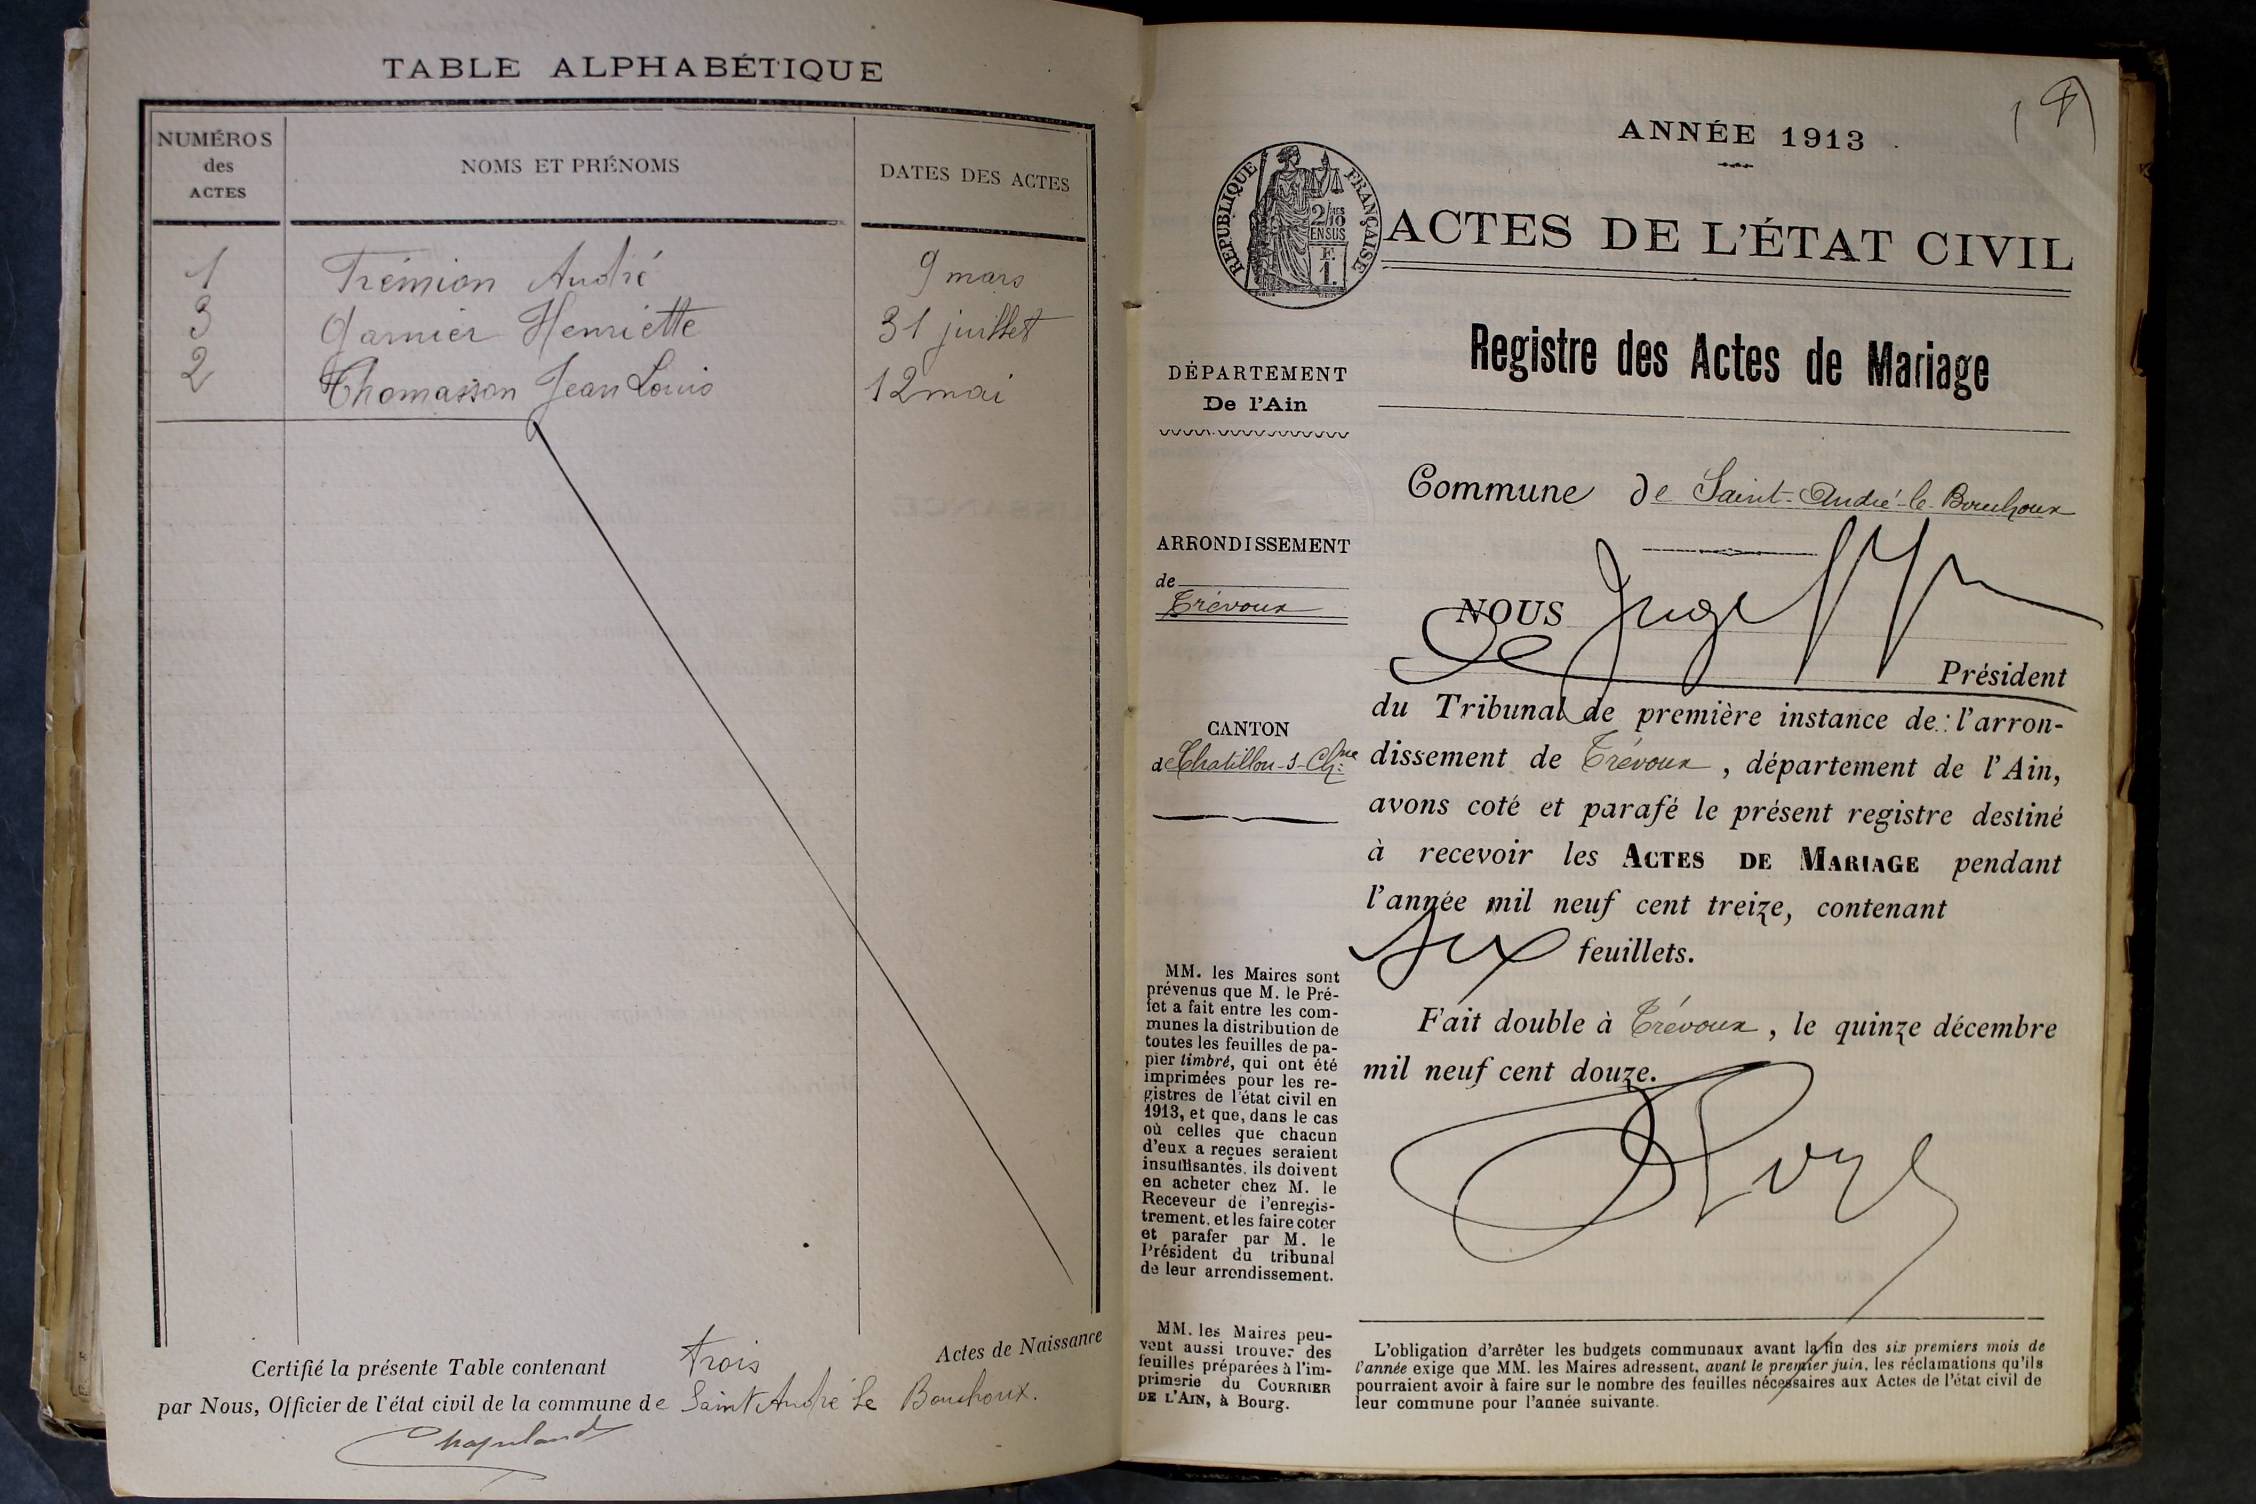 TABLE ALPHABÉTIQUE
NUMÉROS
des
ACTES
NOMS ET PRÉNOMS
DATES DES ACTES
1 Trémion André 9 mars
3 Garnier Henriette 31 juillet
2 Thomasson Jean Louis 12 mai
Certifié la présente Table contenant trois Actes de Naissance
par Nous, Officier de l'état civil de la commune de Saint André Le Bouchoux.
ANNÉE 1913
RÉPUBLIQUE FRANÇAISE
2/10
EN SUS
F.
1.
ACTES DE L'ÉTAT CIVIL
Registre des Actes de Mariage
DÉPARTEMENT
De l'Ain
Commune de Saint-André-le-Bouchoux
ARRONDISSEMENT
de
Trévoux
NOUS Juge
Président
du Tribunal de première instance de l'arron-
CANTON
de Chatillon-s-Ch.ne
dissement de Trévoux, département de l'Ain,
avons coté et parafé le présent registre destiné
à recevoir les ACTES DE MARIAGE pendant
l'année mil neuf cent treize, contenant
six feuillets.
Fait double à Trévoux, le quinze décembre
mil neuf cent douze.
MM. les Maires sont
prévenus que M. le Pré-
fet a fait entre les com-
munes la distribution de
toutes les feuilles de pa-
pier timbré, qui ont été
imprimées pour les re-
gistres de l'état civil en
1913, et que, dans le cas
où celles que chacun
d'eux a reçues seraient
insuffisantes, ils doivent
en acheter chez M. le
Receveur de l'enregis-
trement, et les faire coter
et parafer par M. le
Président du tribunal
de leur arrondissement.
MM. les Maires peu-
vent aussi trouver des
feuilles préparées à l'im-
primerie du COURRIER
DE L'AIN, à Bourg.
L'obligation d'arrêter les budgets communaux avant la fin des six premiers mois de
l'année exige que MM. les Maires adressent, avant le premier juin, les réclamations qu'ils
pourraient avoir à faire sur le nombre des feuilles nécessaires aux Actes de l'état civil de
leur commune pour l'année suivante.